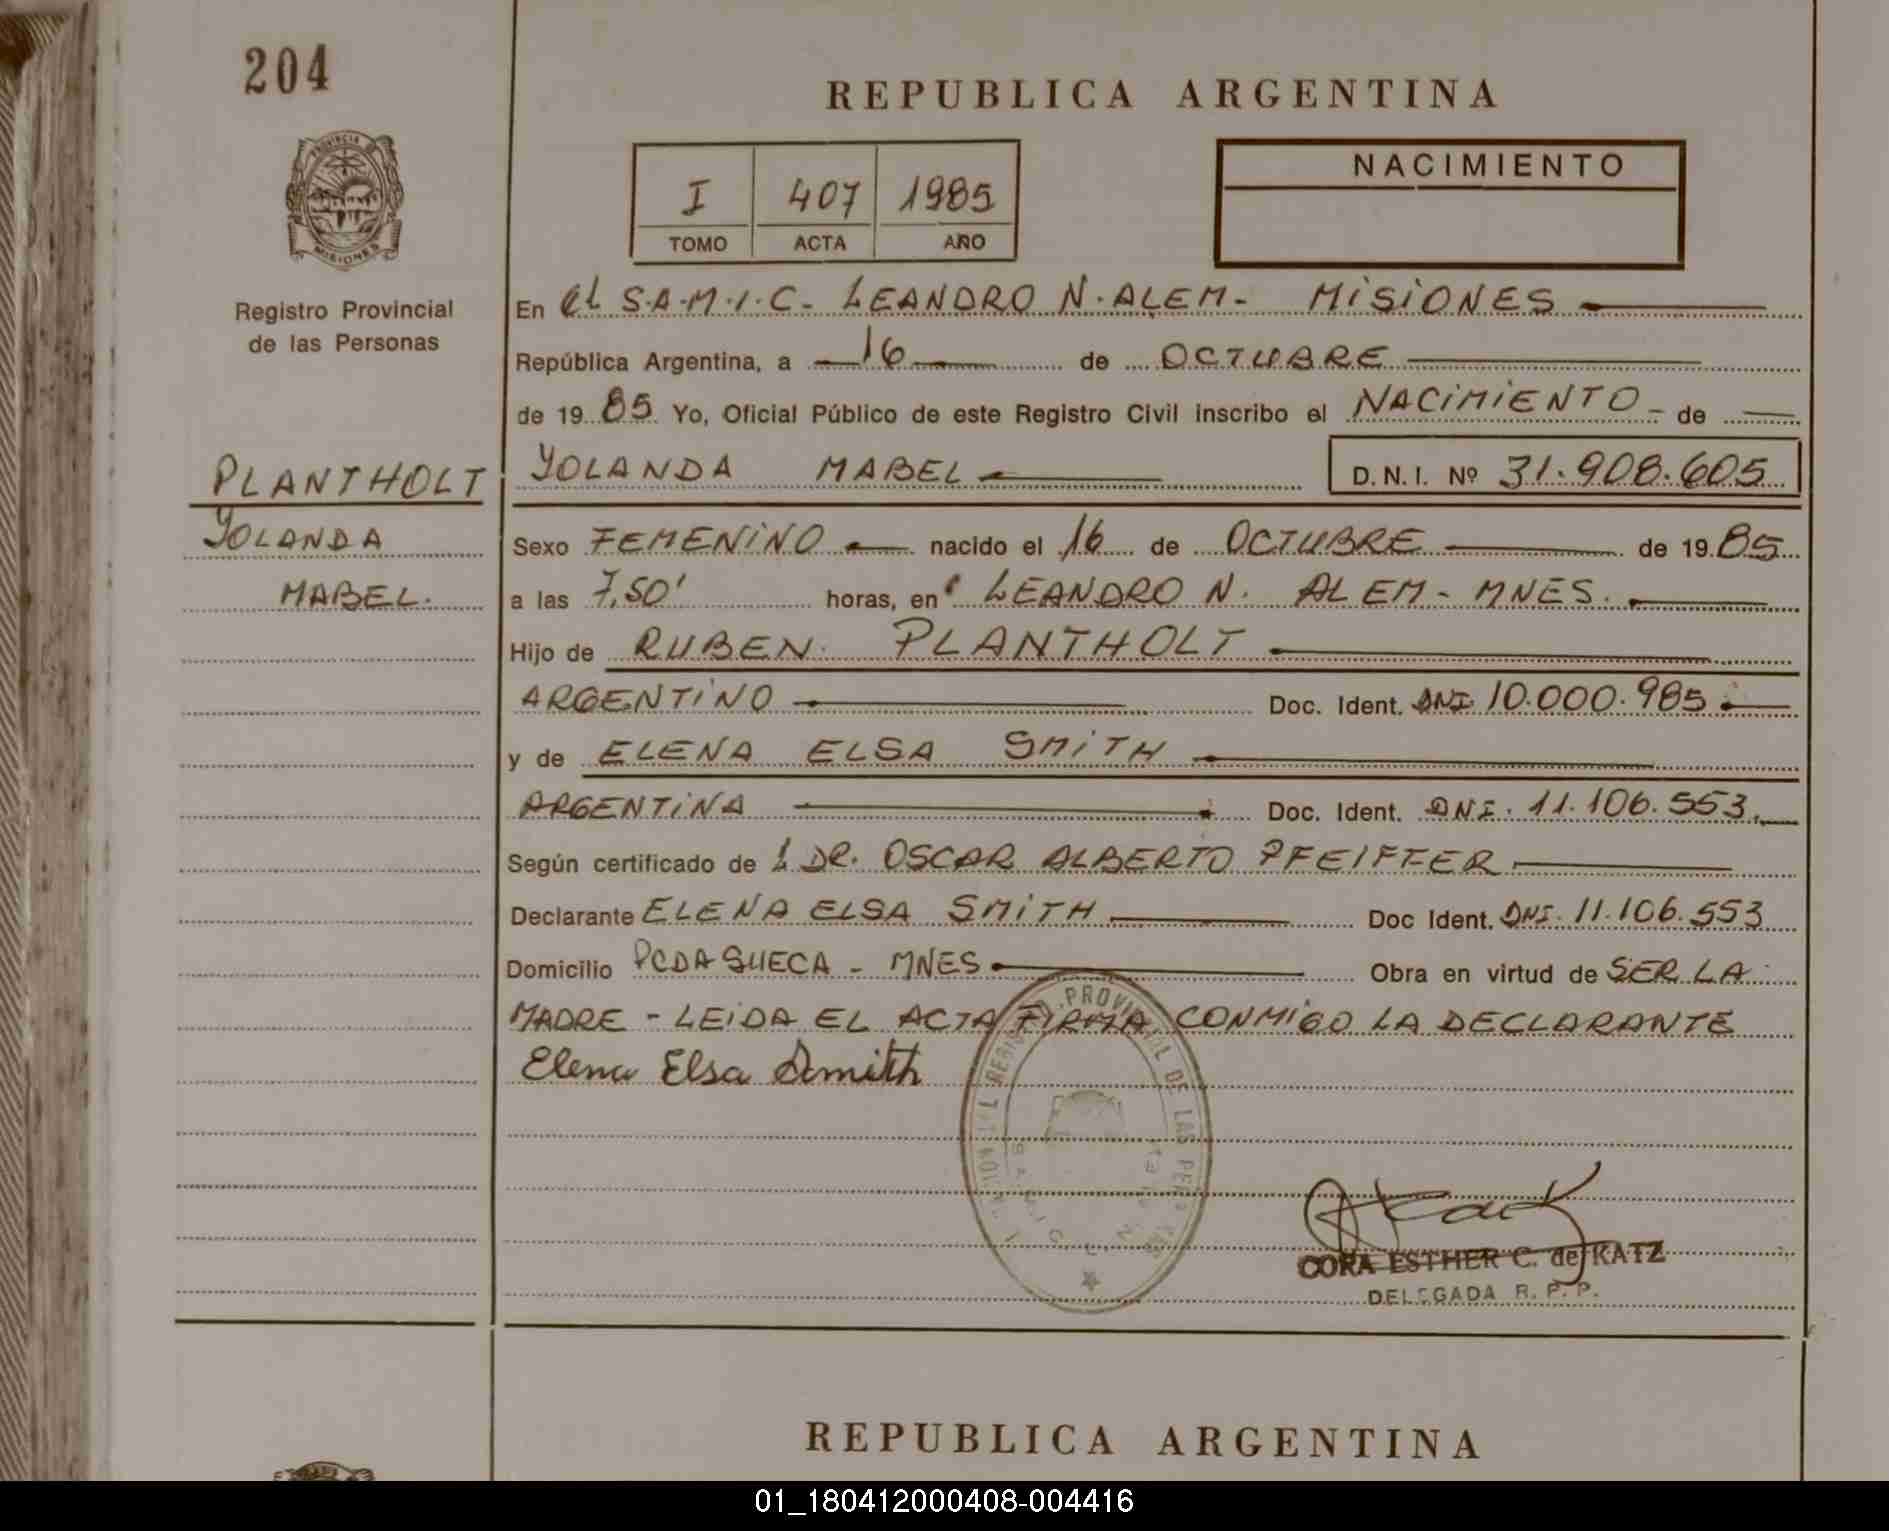 204
REPUBLICA ARGENTINA
PROVINCIA DE
MISIONES
Registro Provincial
de las Personas
I 407 1985
TOMO ACTA AÑO
NACIMIENTO
En el S.A.M.I.C- LEANDRO N. ALEM- MISIONES
República Argentina, a 16 de OCTUBRE
de 19 85 Yo, Oficial Público de este Registro Civil inscribo el NACIMIENTO - de
PLANTHOLT
YOLANDA MABEL D.N.I. Nº 31.908.605
YOLANDA
MABEL.
Sexo FEMENINO nacido el 16 de OCTUBRE de 19 85
a las 7,50' horas, en LEANDRO N. ALEM - MNES.
Hijo de RUBEN PLANTHOLT
ARGENTINO Doc. Ident. DNI 10.000.985
y de ELENA ELSA SMITH
ARGENTINA Doc. Ident. DNI. 11.106.553
Según certificado de L DR. OSCAR ALBERTO PFEIFFER
Declarante ELENA ELSA SMITH Doc Ident. DNI. 11.106.553
Domicilio PCDA SUECA - MNES Obra en virtud de SER LA
MADRE - LEIDA EL ACTA FIRMA CONMIGO LA DECLARANTE
Elena Elsa Smith
PROVINCIAL DE LAS
CORA ESTHER C. de KATZ
DELEGADA R. P. P.
REPUBLICA ARGENTINA
01_180412000408-004416